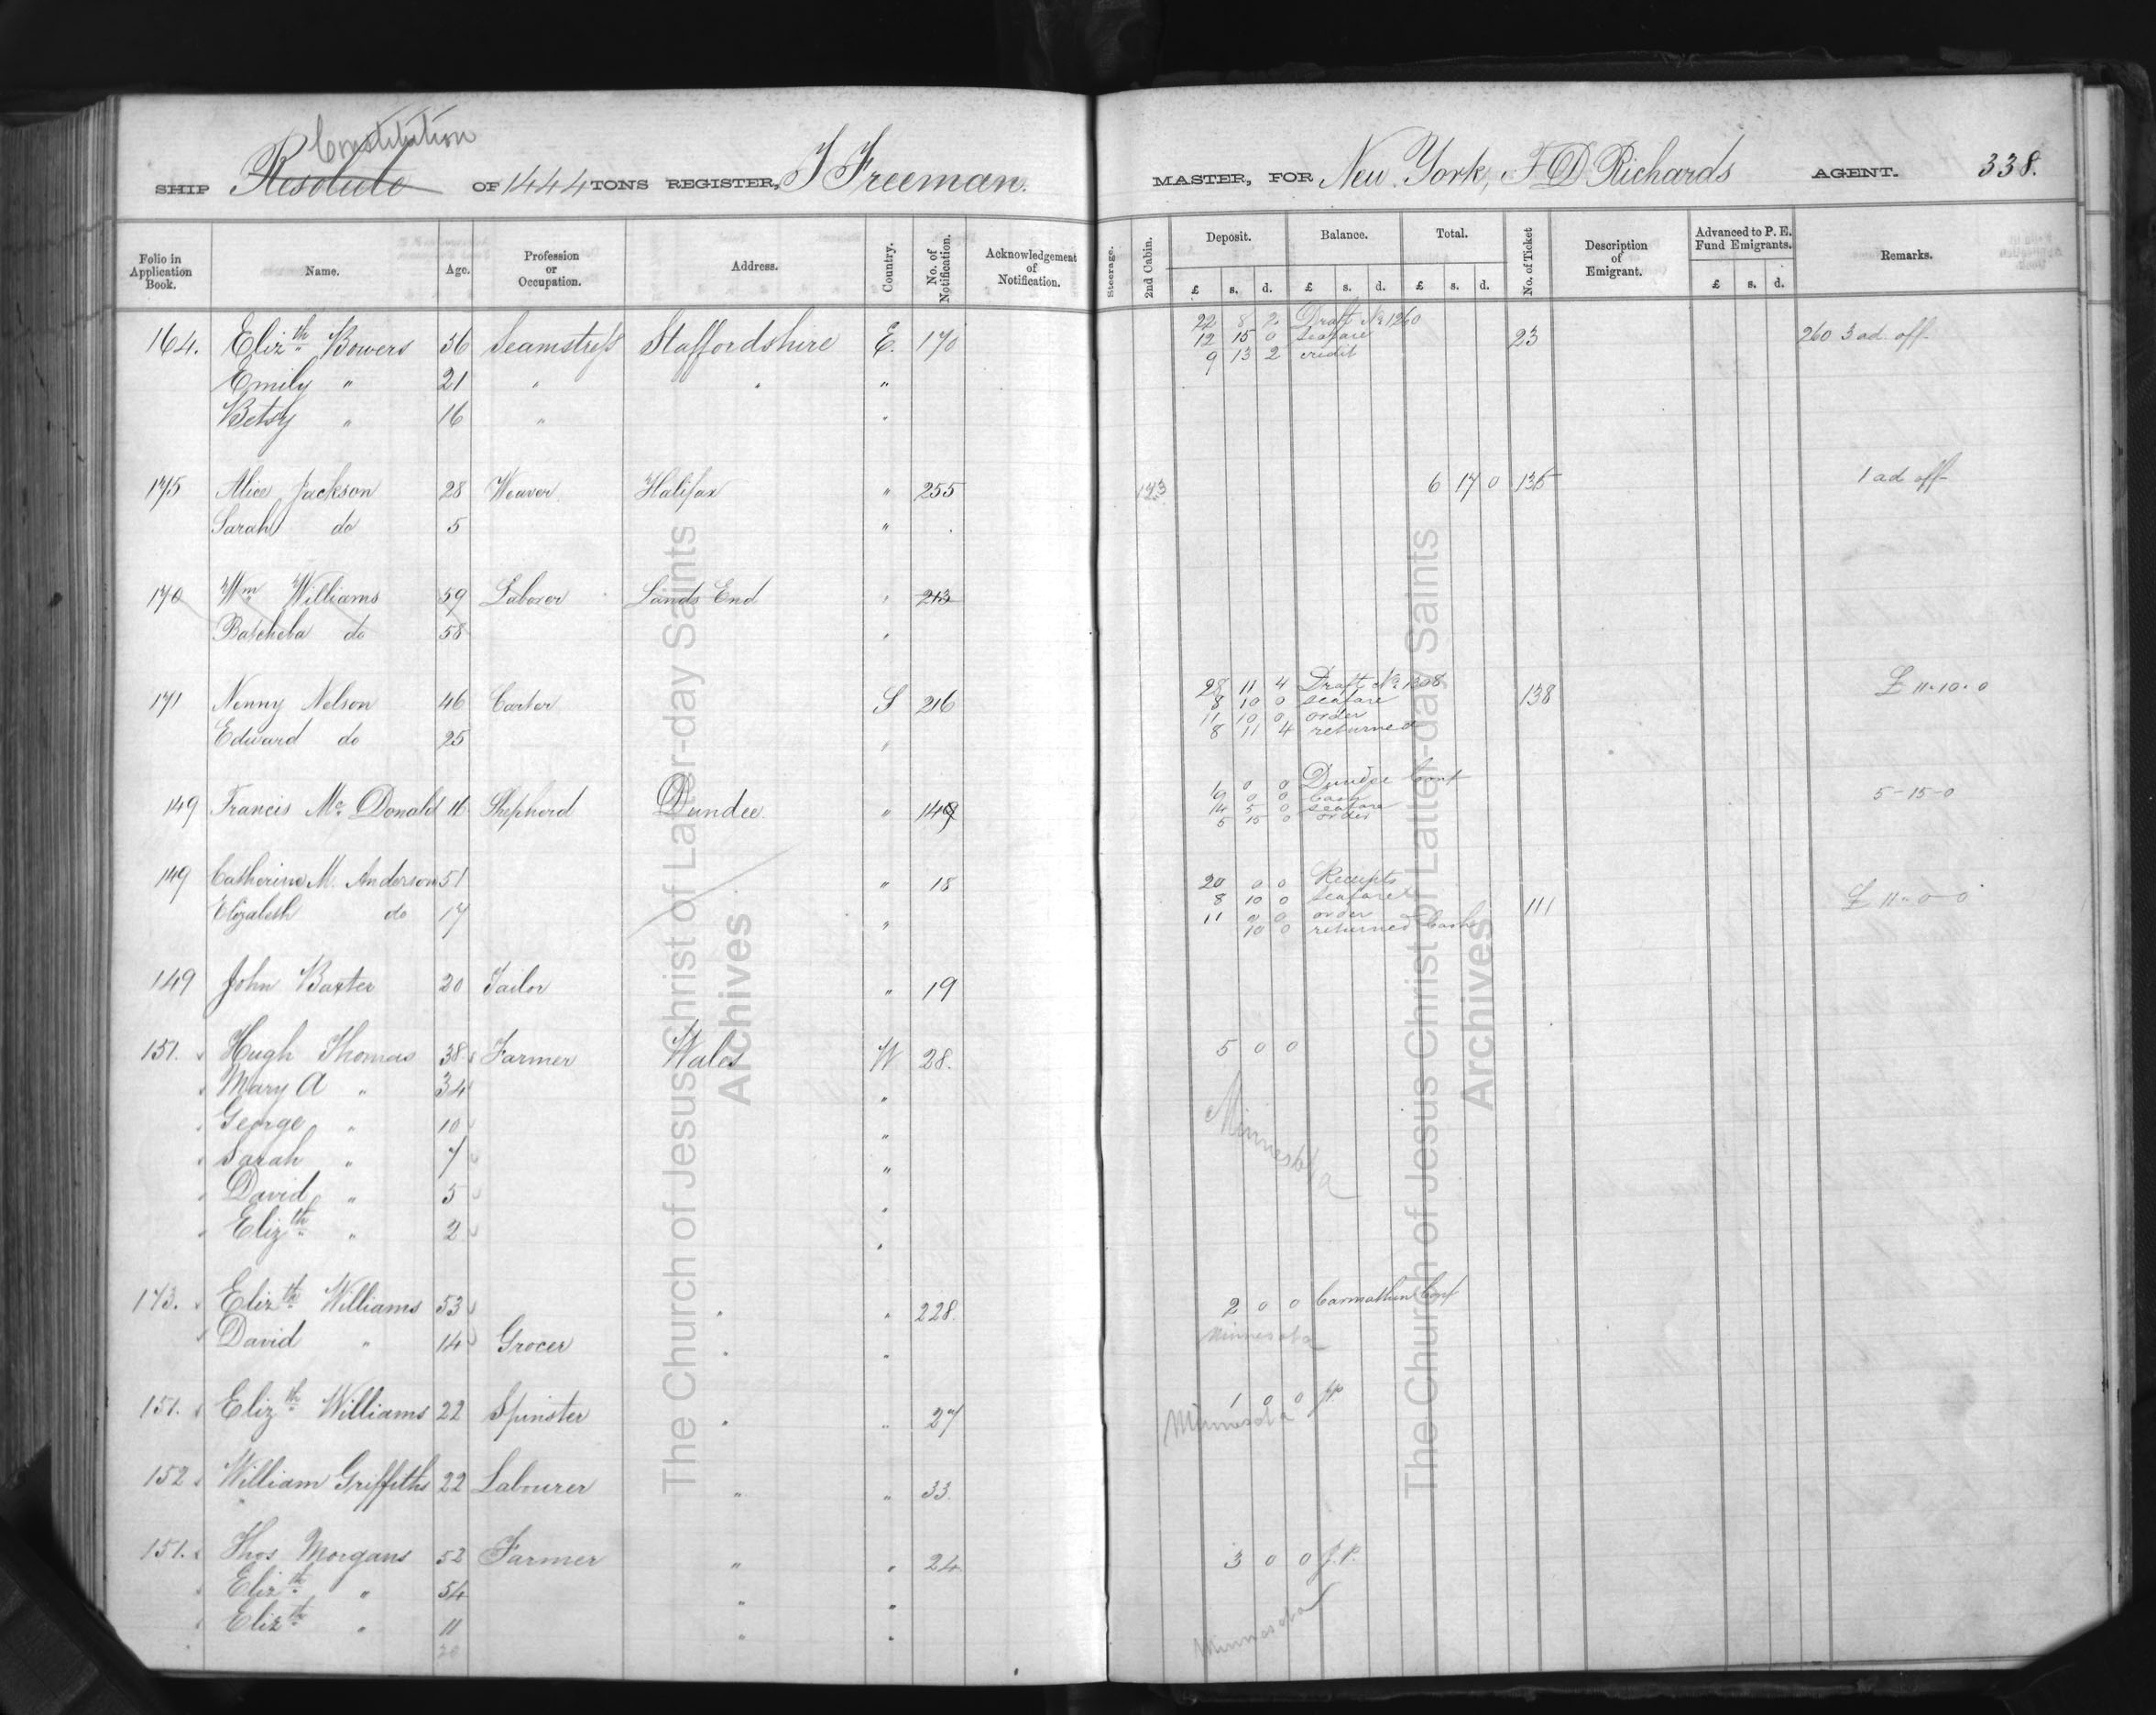 Constitution
SHIP Resolute OF 1444 TONS REGISTER, J Freeman. MASTER, FOR New York, F D Richards AGENT. 338.
Folio in Application Book. Name. Age. Profession or Occupation. Address. Country. No. of Notification. Acknowledgement of Notification. Steerage. 2nd Cabin. Deposit. Balance. Total. No. of Ticket Description of Emigrant. Advanced to P. E. Fund Emigrants. Remarks.
£ s. d. £ s. d. £ s. d. £ s. d.
22 8 2 Draft No 1260
164. Elizth Bowers 56 Seamstress Staffordshire E. 170 12 15 0 seafare 23 260 3 ad. off
9 13 2 credit
Emily " 21 " " "
Betsy " 16 " "
175 Alice Jackson 28 Weaver Halifax " 255 6 17 0 135 1 ad off
Sarah do 5 "
170 Wm Williams 59 Laborer Lands End " 213
Batsheba do 58 "
28 11 4 Draft No 1308
171 Nenny Nelson 46 Carter S 216 8 10 0 seafare 138 £ 11-10-0
11 10 0 order
Edward do 25 " 8 11 4 returned
0 0 Dundee Conf
149 Francis Mc Donald 16 Shepherd Dundee " 149 0 0 Cash 5-15-0
14 5 0 seafare
5 15 0 order
149 Catherine M. Anderson 51 " 18 20 0 0 Receipts
8 10 0 seafare
Elizabeth do 17 " 11 0 0 order 111 £ 11-0-0
10 0 returned Cash
149 John Baxter 20 Tailor " 19
151. Hugh Thomas 38 Farmer Wales W 28. 5 0 0
Mary A " 34 "
George " 10 " Minnesota
Sarah " 7 "
David " 5 "
Elizth " 2 "
173. Elizth Williams 53 " " 228. 2 0 0 Carmathen Conf
David " 14 Grocer " " Minnesota
151. Elizth Williams 22 Spinster " " 27 1 0 0
Minnesota
152 William Griffiths 22 Labourer " " 33
151. Thos Morgans 52 Farmer " " 24 3 0 0 J. P.
Elizth " 54 " "
Elizth " 11 " " Minnesota
The Church of Jesus Christ of Latter-day Saints
Archives
The Church of Jesus Christ of Latter-day Saints
Archives